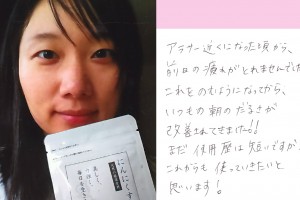 アラサー近くになった頃から、
前日の疲れがとれませんでした
これをのむようになってから、
いつもの朝のだるさが
改善されてきました!!
まだ使用歴は短いですが、
これからも使っていきたいと
思います!
にんにくす